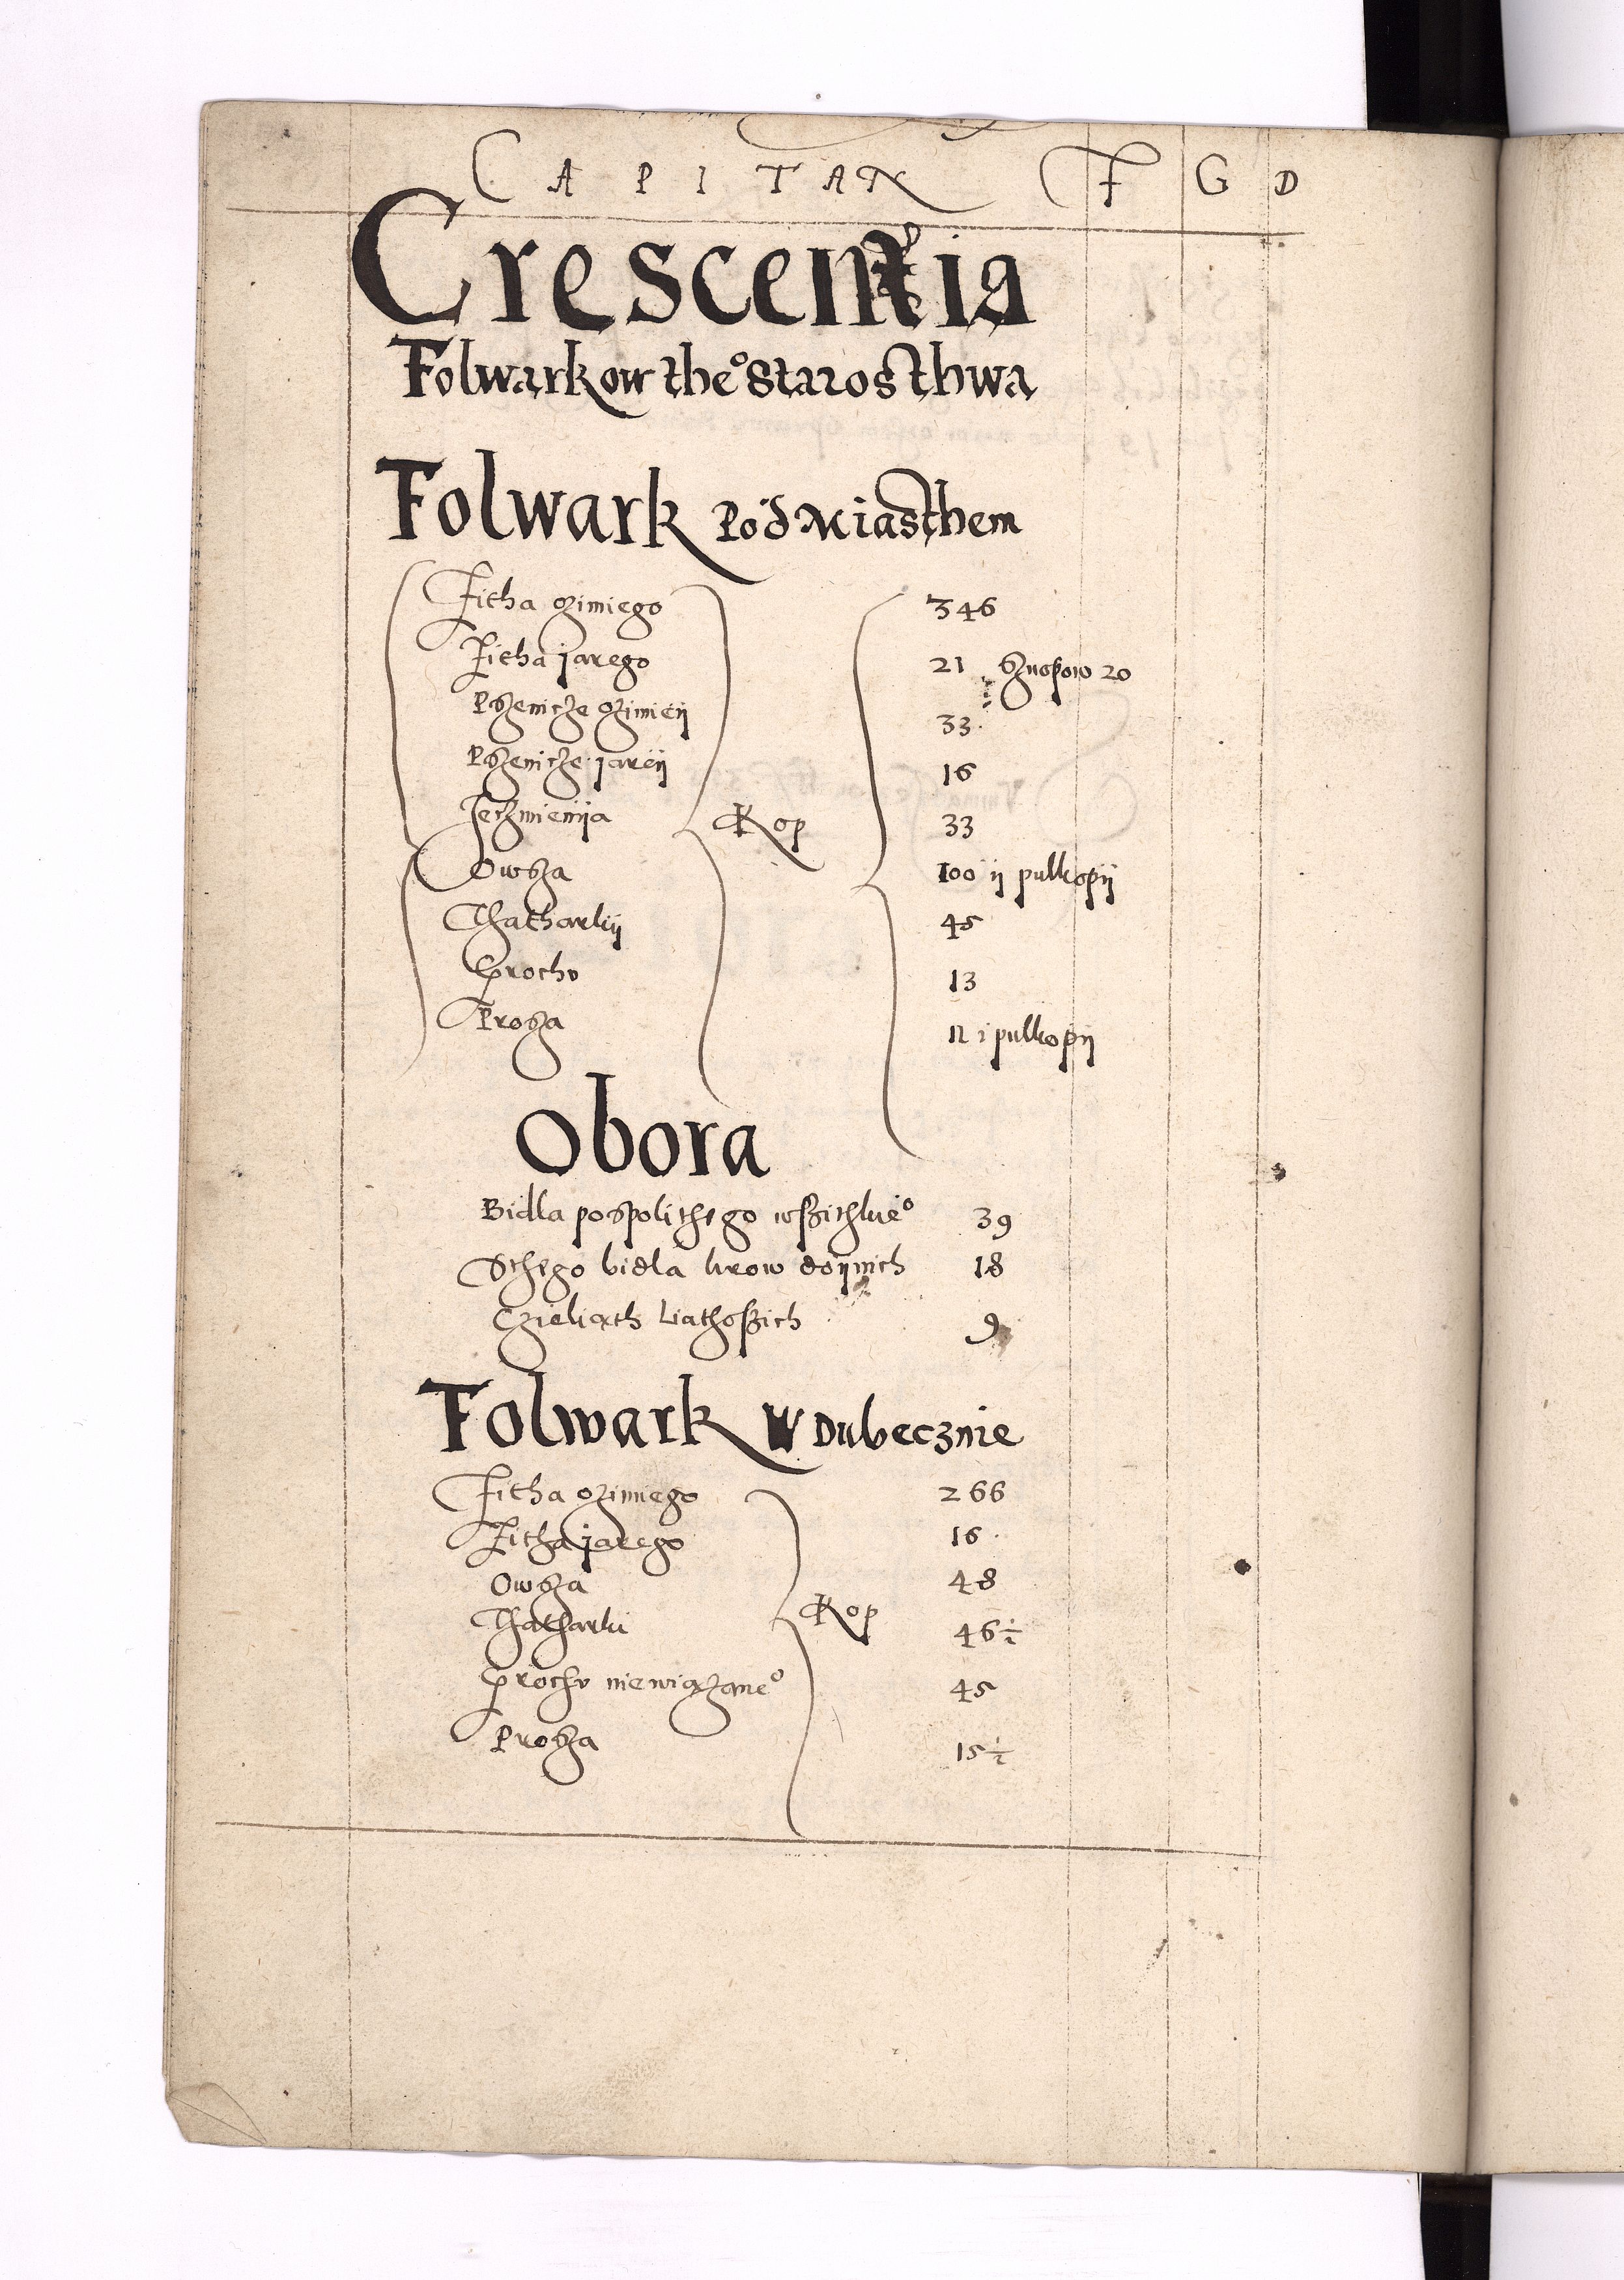 CAPITAN F G D
Crescentia
Folwarkow the° Starosthwa
Folwark Pod Miasthem
Zitha ozimiego 346
Zitha jarego 21 Sznopow 20
Pszenicze ozimeÿ 33
Pszenicze jareÿ 16
Jeczmienÿa Kop 33
Owsza 100 ÿ pulkopÿ
Thatharkÿ 45
Grochv 13
Prosza 12 i pulkopÿ
Obora
Bidla pospolithego wszithkie° 39
S thego bidla krow doÿnich 18
Czieliath liathoszich 9
Folwark W Dubecznie
Zitha ozimiego 266
Zitha jarego 16
Owsza 48
Thatharki Kop 46 1/2
Grochv niewiązane° 45
Prosza 15 1/2